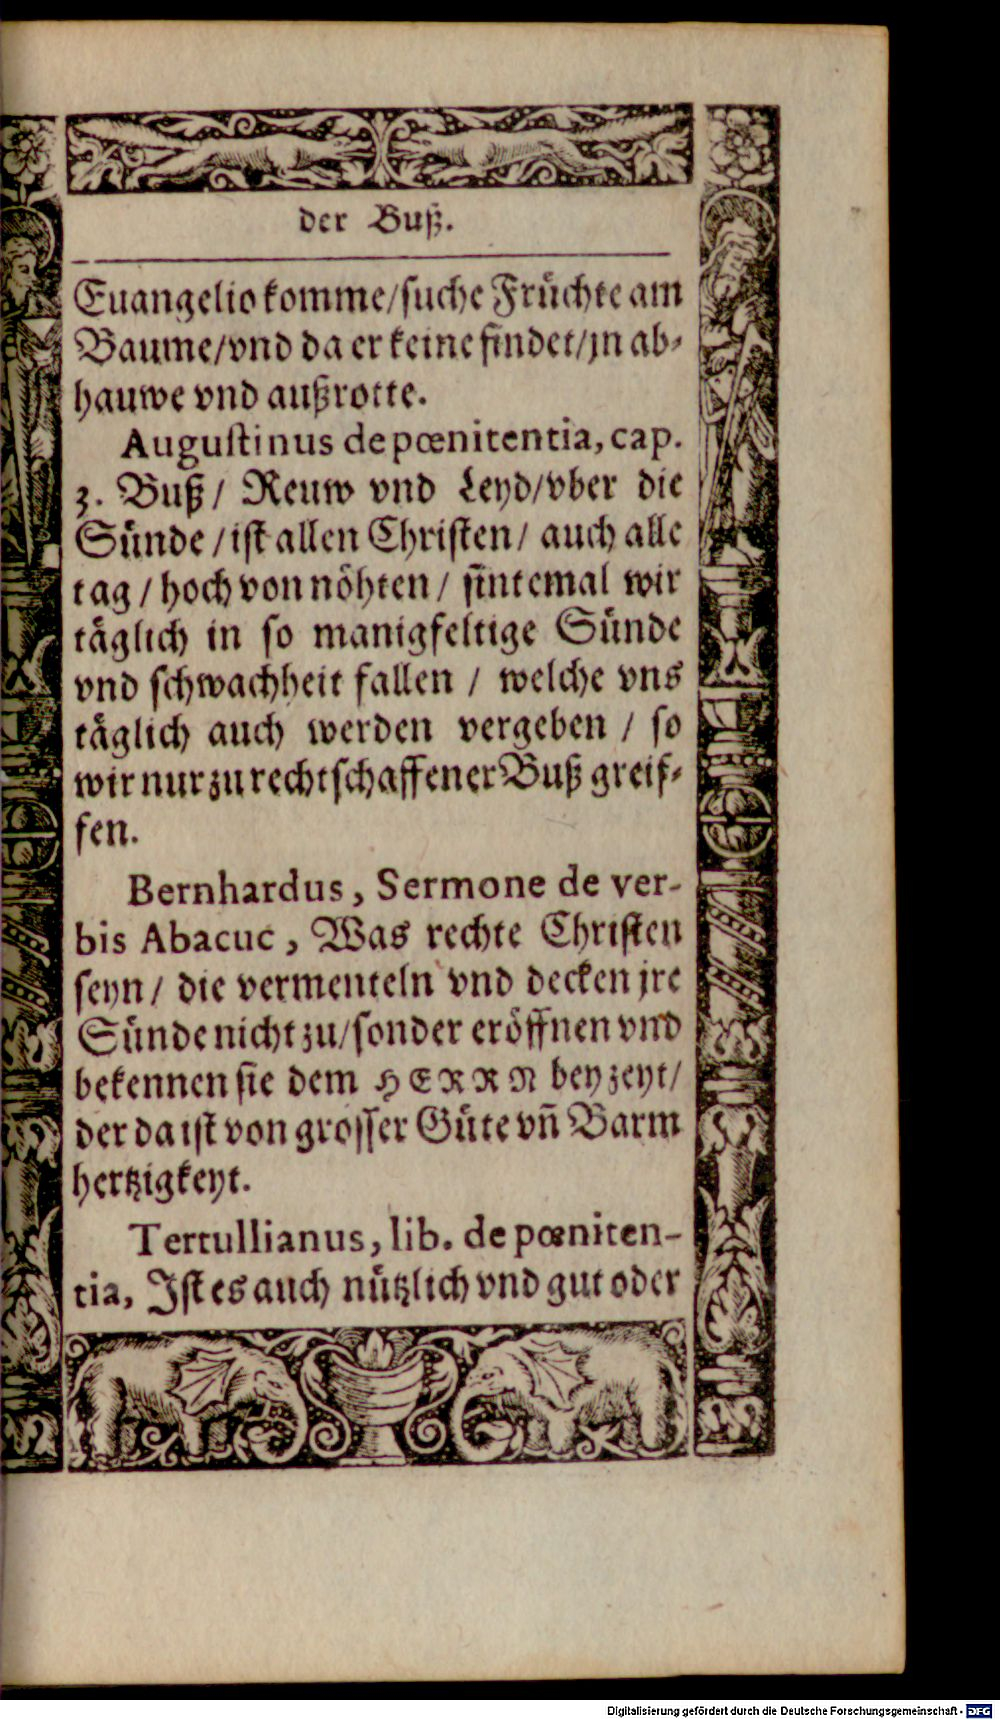 der Buß.
Euangelio komme/suche Früchte am
Baume/vnd da er keine findet/jn ab-
hauwe vnd außrotte.
Augustinus de pœnitentia, cap.
3. Buß/ Reuw vnd Leyd/vber die
Sünde/ist allen Christen/ auch alle
tag/hoch von nöhten/ sintemal wir
täglich in so manigfeltige Sünde
vnd schwachheit fallen / welche vns
täglich auch werden vergeben / so
wir nur zu rechtschaffener Buß greif-
fen.
Bernhardus, Sermone de ver-
bis Abacuc, Was rechte Christen
seyn/ die vermenteln vnd decken jre
Sünde nicht zu/sonder eröffnen vnd
bekennen sie dem HERRN bey zeyt/
der da ist von grosser Güte vñ Barm
hertzigkeyt.
Tertullianus, lib. de pœniten-
tia, Ist es auch nützlich vnd gut oder
Digitalisierung gefördert durch die Deutsche Forschungsgemeinschaft - DFG